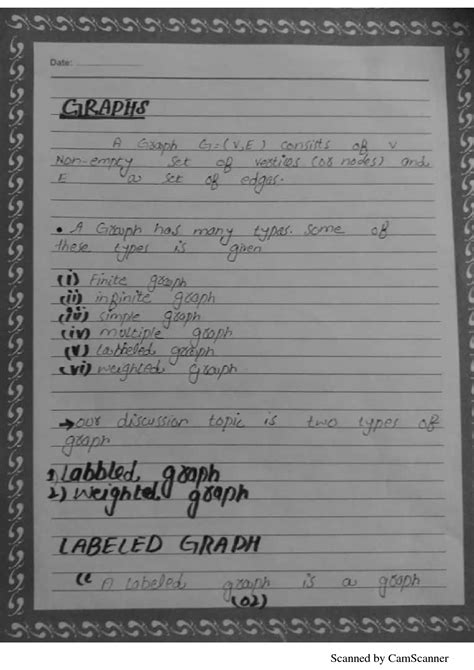 Date:
GRAPHS
A Graph G=(V,E) consists of V
Non-empty set of vertices (or nodes) and
E a set of edges.
• A Graph has many types. Some of
these types is given
(i) Finite graph
(ii) infinite graph
(iii) simple graph
(iv) multiple graph
(v) labeled graph
(vi) weighted Graph
→ our discussion topic is two types of
graph
1) Labbled graph
2) Weighted graph
LABELED GRAPH
“ A labeled graph is a graph
(02)
Scanned by CamScanner